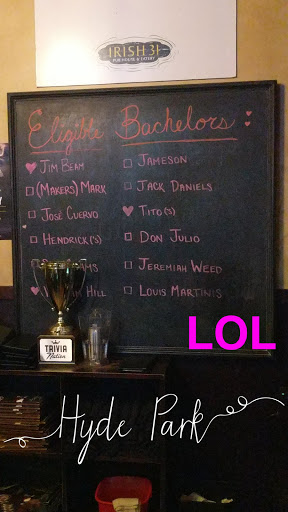 IRISH 31
PUB HOUSE & EATERY
Eligible Bachelors
Jim Beam
(Makers) Mark
José Cuervo
Hendrick('s)
Hill
Jameson
Jack Daniels
Tito(s)
Don Julio
Jeremiah Weed
Louis Martinis
TRIVIA
Nation
LOL
Hyde Park